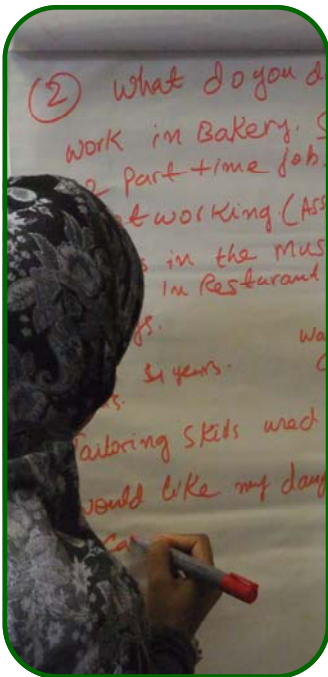 ② What do you d
work in Bakery. S
2 Part time job.
t working. (Ass
s in the Mus
In Resturant
gs.
wa
4 years.
s.
Tailoring Skills
would like my daug